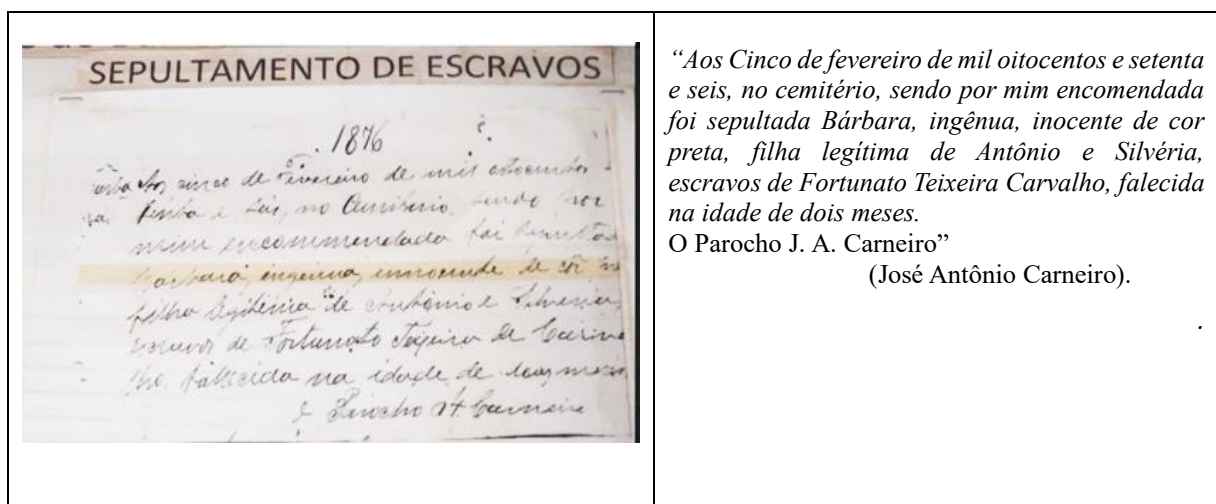 SEPULTAMENTO DE ESCRAVOS
1876
Aos cinco de Fevereiro de mil oitocentos
e seis, no Cemiterio, sendo por
mim encommendada foi
Barbara, ingenua, innocente de côr
filha legitima de Antonio e Silveria,
escravos de Fortunato Teixeira de Carva
lho fallecida na idade de
O Parocho A. Carneiro
“Aos Cinco de fevereiro de mil oitocentos e setenta
e seis, no cemitério, sendo por mim encomendada
foi sepultada Bárbara, ingênua, inocente de cor
preta, filha legítima de Antônio e Silvéria,
escravos de Fortunato Teixeira Carvalho, falecida
na idade de dois meses.
O Parocho J. A. Carneiro”
(José Antônio Carneiro).
.